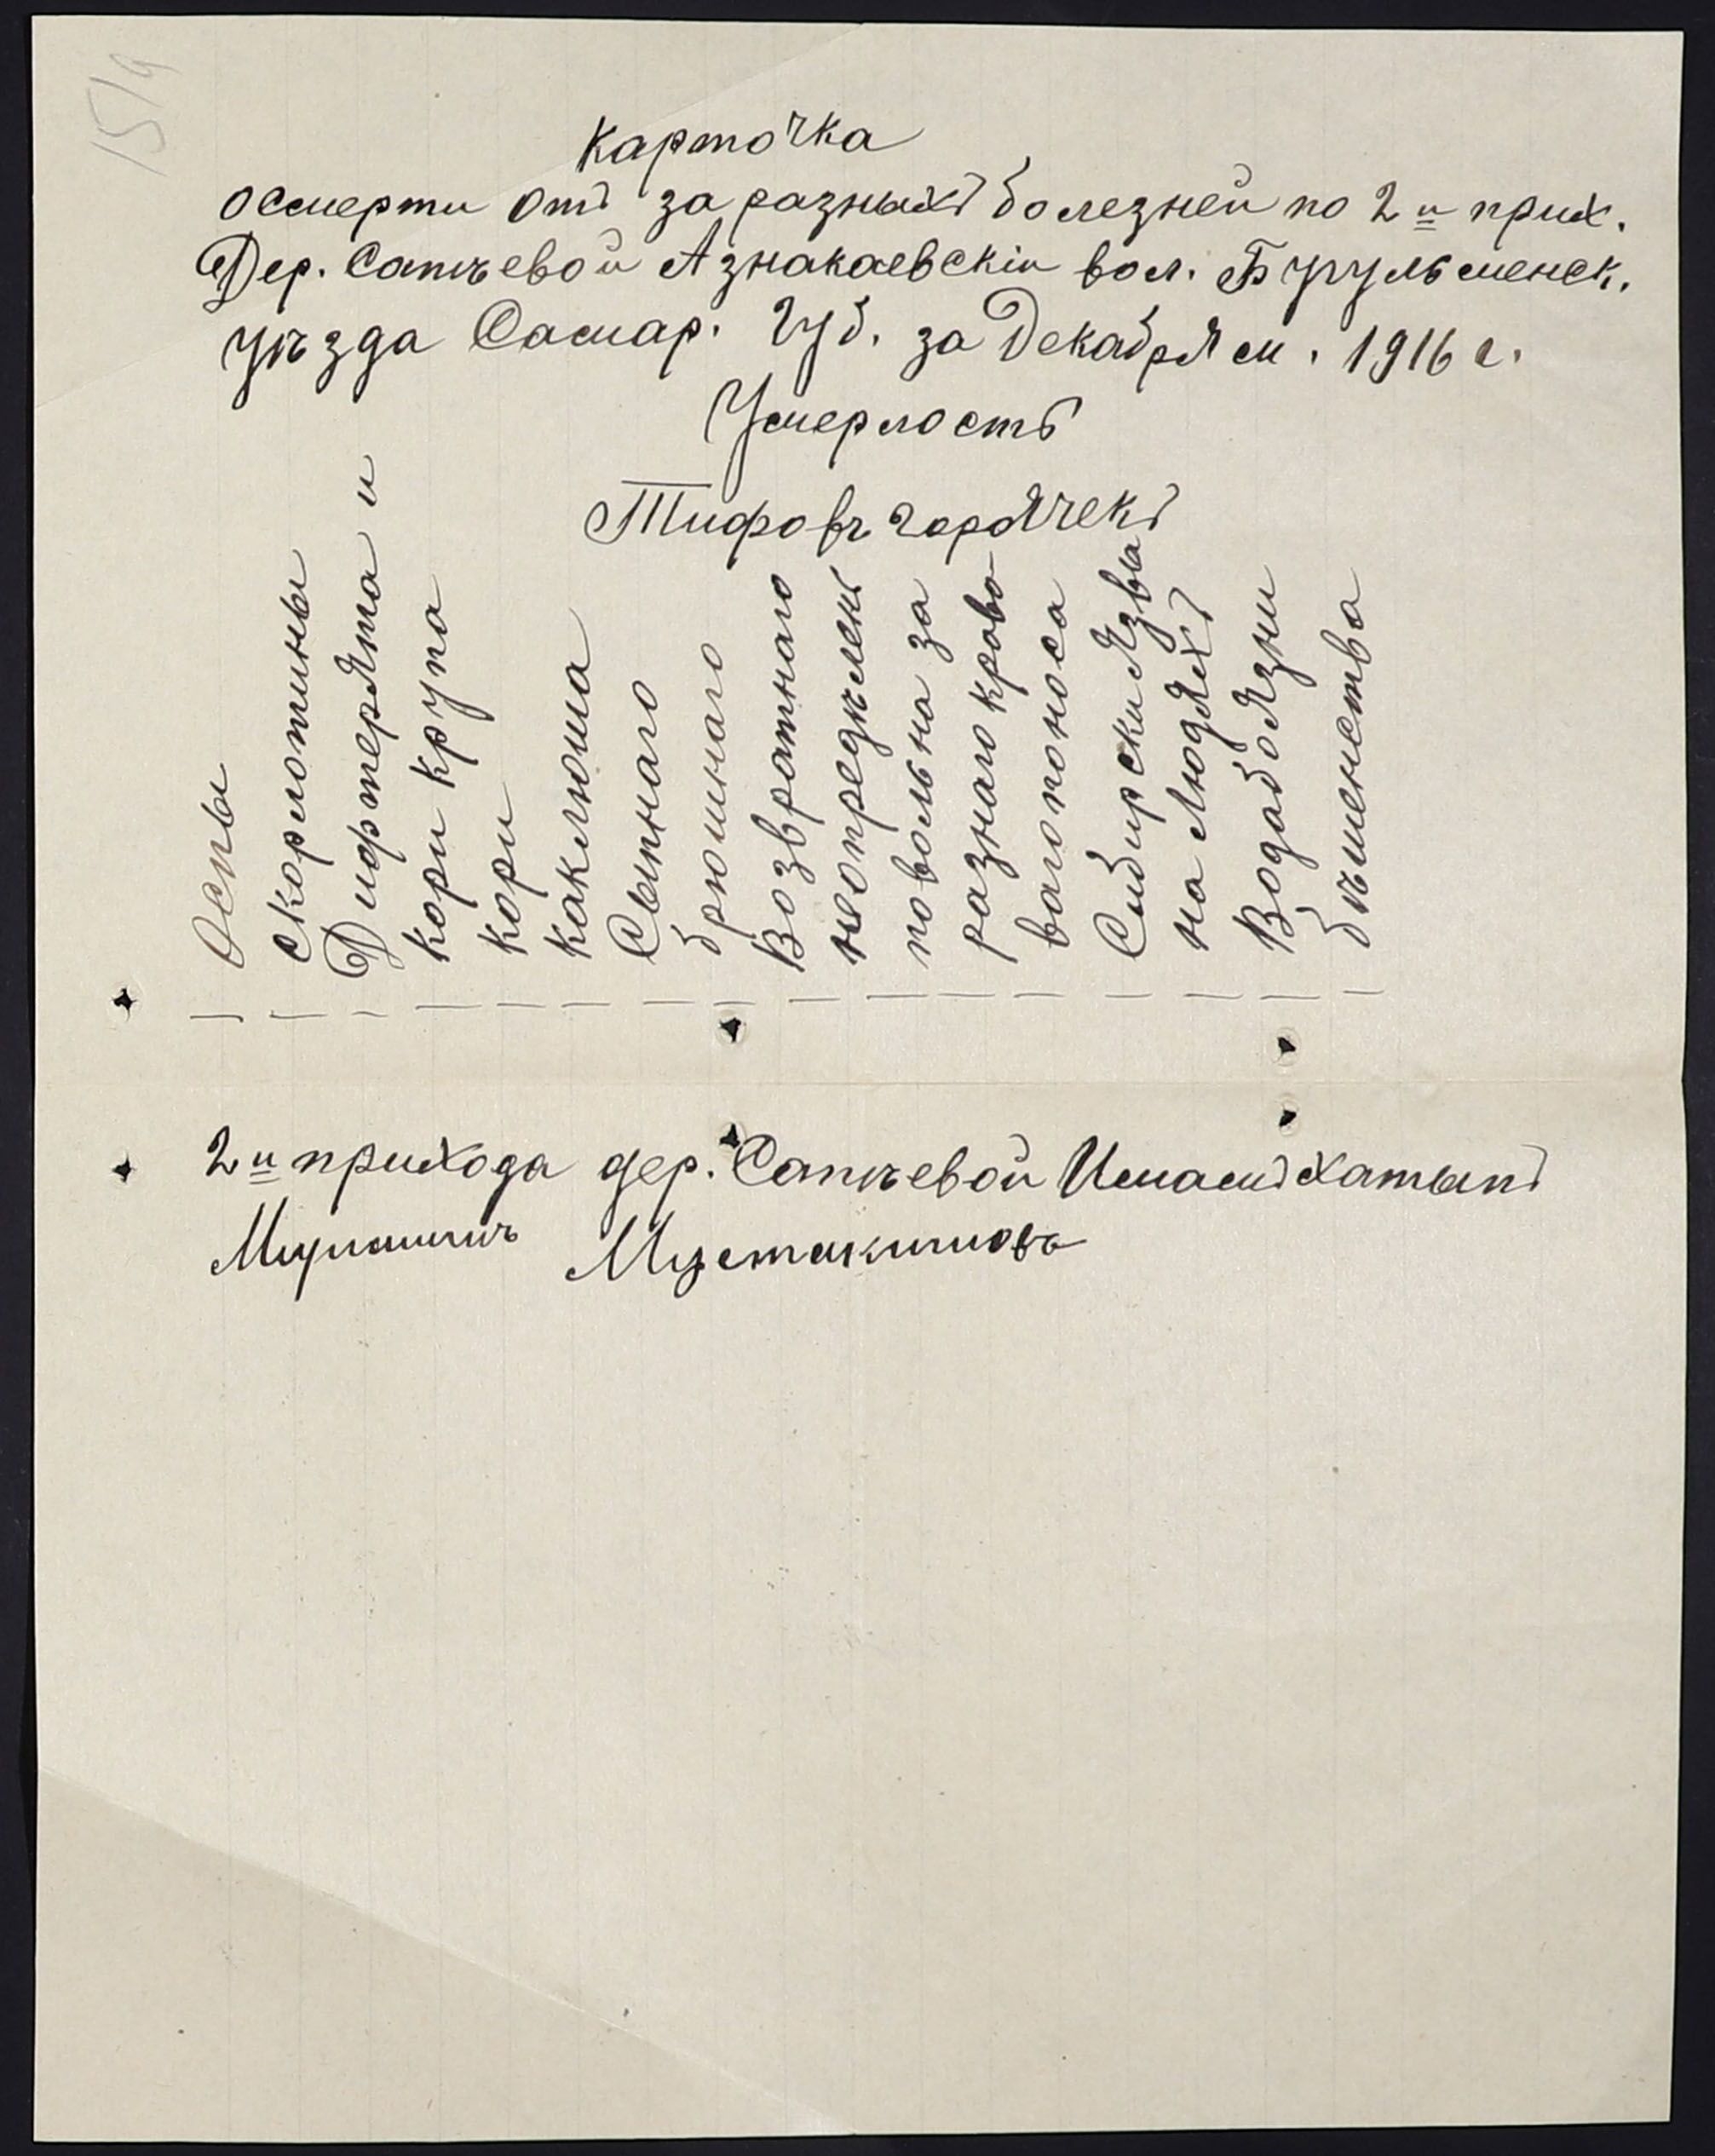 15/9
Карточка
осмерти отъ за разныхъ болезней по 2й прих.
Дер. Сатѣевой Азнакаевскiи вол. Бугульменск.
уѣзда Самар. Губ. за Декабря м. 1916 г.
Умерлость
Тифовъ горячекъ
Оспы
скорлотины
Дифтерята и
кори крупа
кори
каклюша
Сыпнаго
брюшнаго
Возвратнаго
неопредѣлень
повольна за
разнаго крово
ваго поноса
Сибирски Язвы
на Людяхъ
Водабоязни
бѣшенства
— — — — — — — — — — — — — — — —
2й прихода дер. Сатѣевой Имамъ Хатыпъ
Мустакимовъ